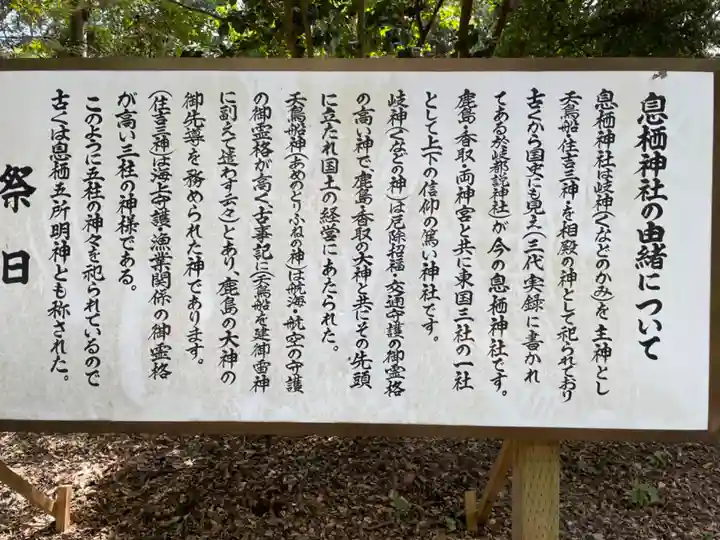 息栖神社の由緒について
息栖神社は岐神(くなどのかみ)を主神とし
天鳥船・住吉三神を相殿の神として祀られており
古くから国史にも見え(三代実録に書かれ
てある於岐都説神社)が今の息栖神社です。
鹿島・香取両神宮と共に東国三社の一社
として上下の信仰の篤い神社です。
岐神(くなどの神)は厄除招福・交通守護の御霊格
の高い神で鹿島・香取の大神と共にその先頭
に立たれ国土の経営にあたられた。
天鳥船神(あめのとりふねの神)は航海・航空の守護
の御霊格が高く、古事記に(天鳥船を建御雷神
に副えて遣わす云々)とあり、鹿島の大神の
御先導を務められた神であります。
(住吉三神)は海上守護・漁業関係の御霊格
が高い三柱の神様である。
このように五柱の神々を祀られているので
古くは息栖五所明神とも称された。
祭日